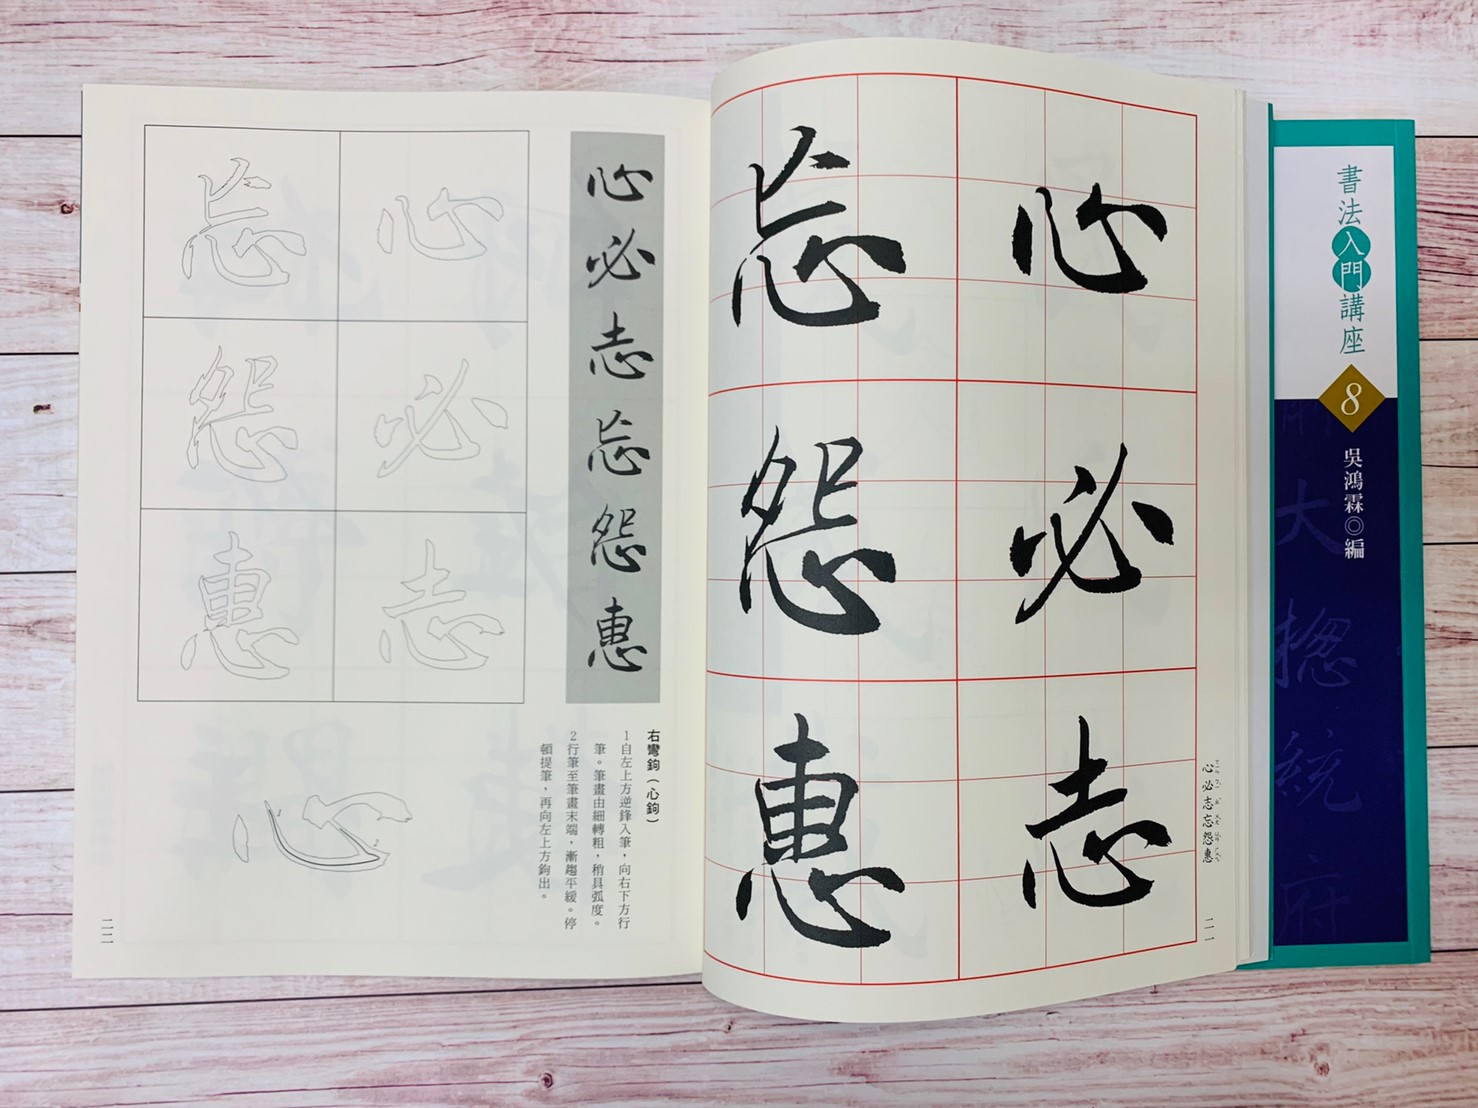 書法入門講座
8
吳鴻霖◎編
大揔統府
心必志忘怨惠
二一
心必志
忘怨惠
心必志忘怨惠
右彎鉤（心鉤）
1自左上方逆鋒入筆，向右下方行
筆。筆畫由細轉粗，稍具弧度。
2行筆至筆畫末端，漸趨平緩。停
頓提筆，再向左上方鉤出。
心必志
忘怨惠
心
二二